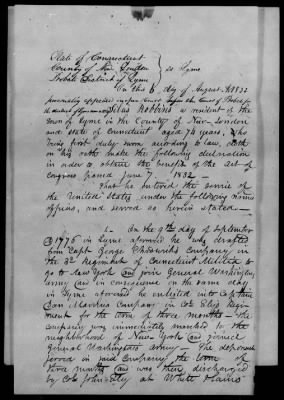 State of Connecticut
County of New London } ss Lyme
Probate District of Lyme
On this 6 day of August AD 1832
personally appeared in open Court before the Court of Probate for
the district of Lyme Silas Robbins a resident of the
town of Lyme in the Country of New-London
and state of Connecticut aged 74 years, who
being first duly sworn according to law, doth
on his oath make the following declaration
in order to obtain the benefit of the act of
congress passed June 7 1832 —
That he entered the service of
the United States under the following named
officers, and served as herein stated —
1. On the 9th day of September
AD 1776 in Lyme aforesaid he was drafted
from Capt George Company in
the 3d Regiment of Connecticut Militia to
go to New York and join General Washington's
army and in consequence on the same day
in Lyme aforesaid he enlisted into Captain
Dan Company in Col Elys Regi-
ment for the term of three months — the
company was immediately marched to the
neighborhood of New York and joined
General Washington's army — the deponent
served in said company the term of
three months and was then discharged
by Col John Ely at White Plains